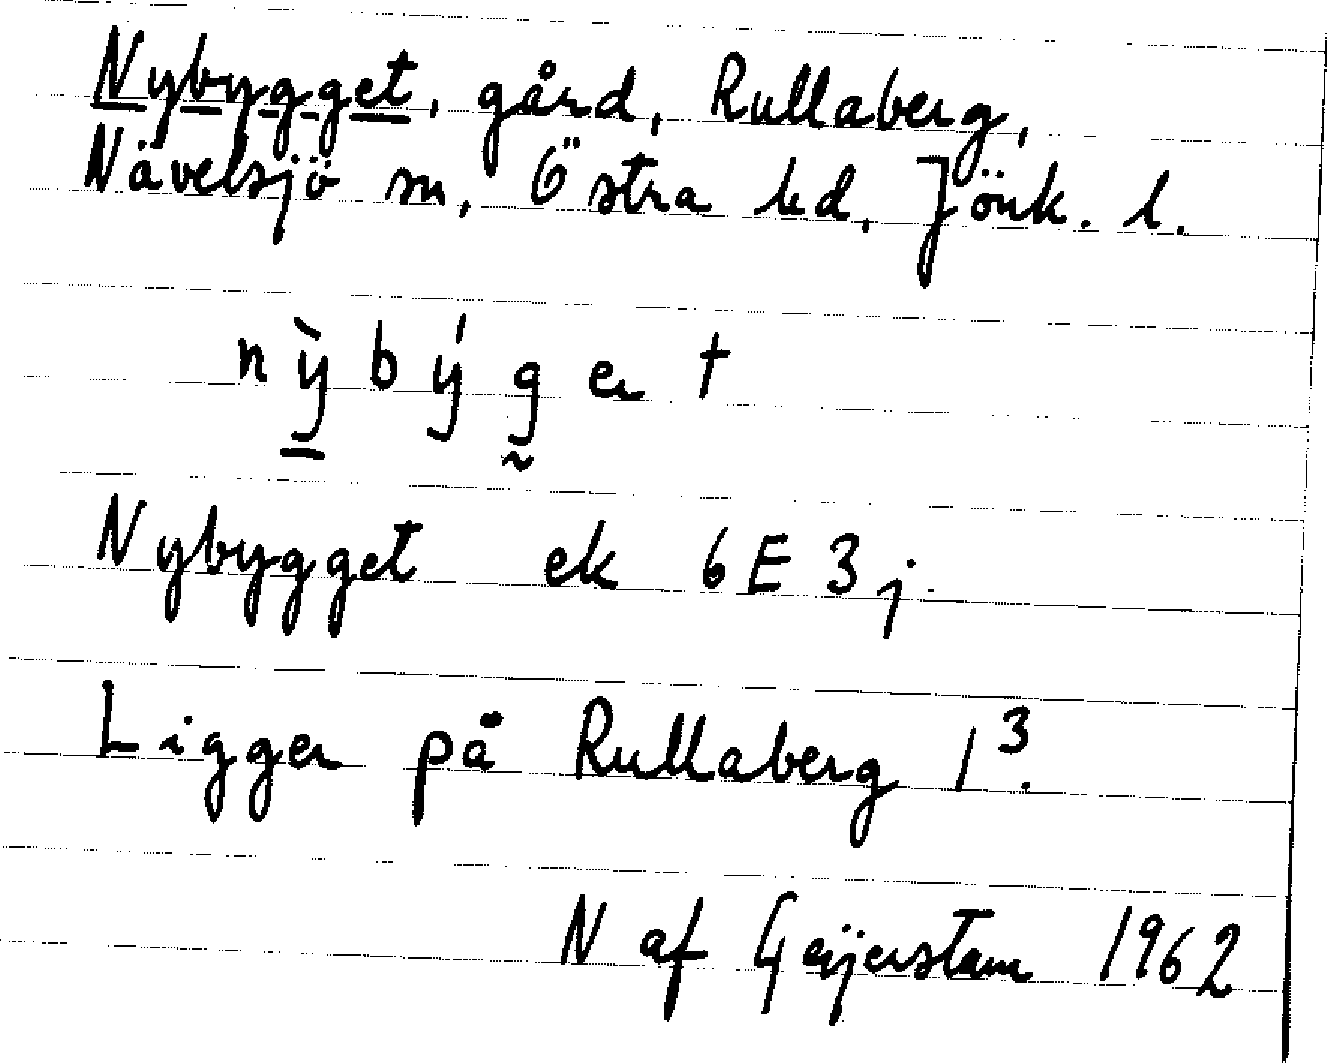 Nybygget, gård, Rullaberg,
Nävelsjö sn, Östra hd, Jönk. l.
nỳbýget
Nybygget ek 6E3j.
Ligger på Rullaberg 1³.
N af Geijerstam 1962